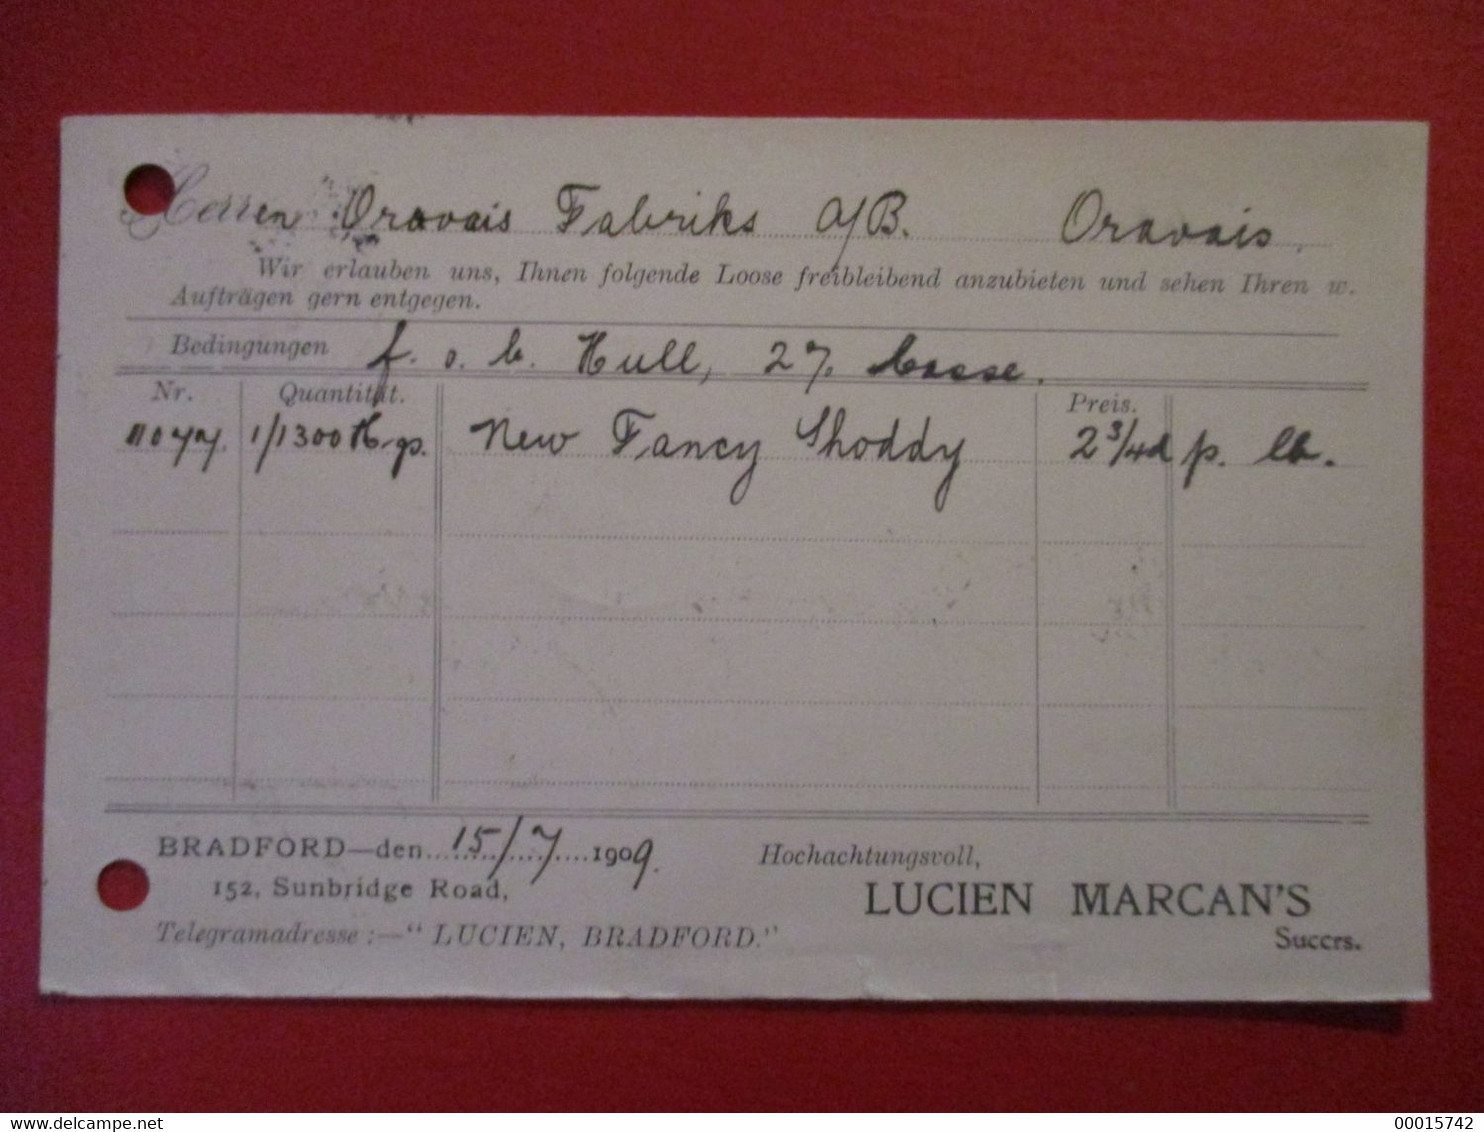 Herren Oravais Fabriks A/B. Oravais.
Wir erlauben uns, Ihnen folgende Loose freibleibend anzubieten und sehen Ihren w.
Aufträgen gern entgegen.
Bedingungen f. o. b. Hull, 2% Casse.
Nr. Quantität. Preis.
11077. 1/1300 K.gs. New Fancy Shoddy 2 3/4d p. lb.
BRADFORD—den 15/7 1909.
Hochachtungsvoll,
152, Sunbridge Road,
LUCIEN MARCAN'S
Telegramadresse:—"LUCIEN, BRADFORD."
Succrs.
delcampe.net
00015742